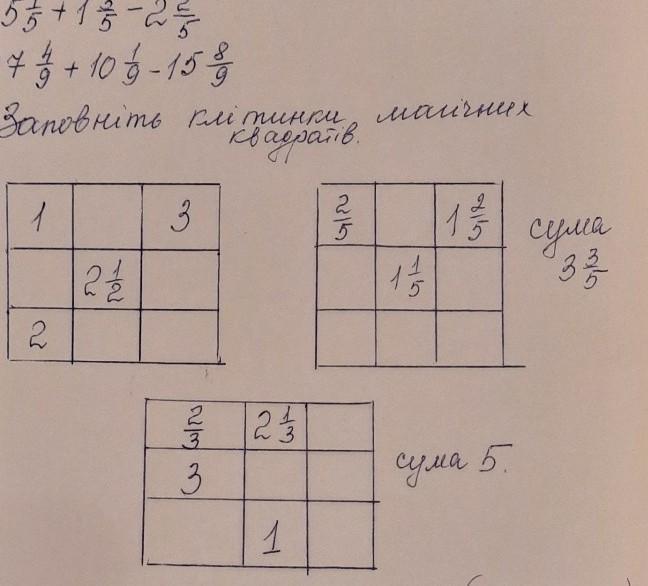 5 1/5 + 1 3/5 - 2 2/5
7 4/9 + 10 1/9 - 15 8/9
Заповніть клітинки магічних
квадратів.
1 3
2 1/2
2
2/5 1 2/5
1 1/5
сума
3 3/5
2/3 2 1/3
3
1
сума 5.